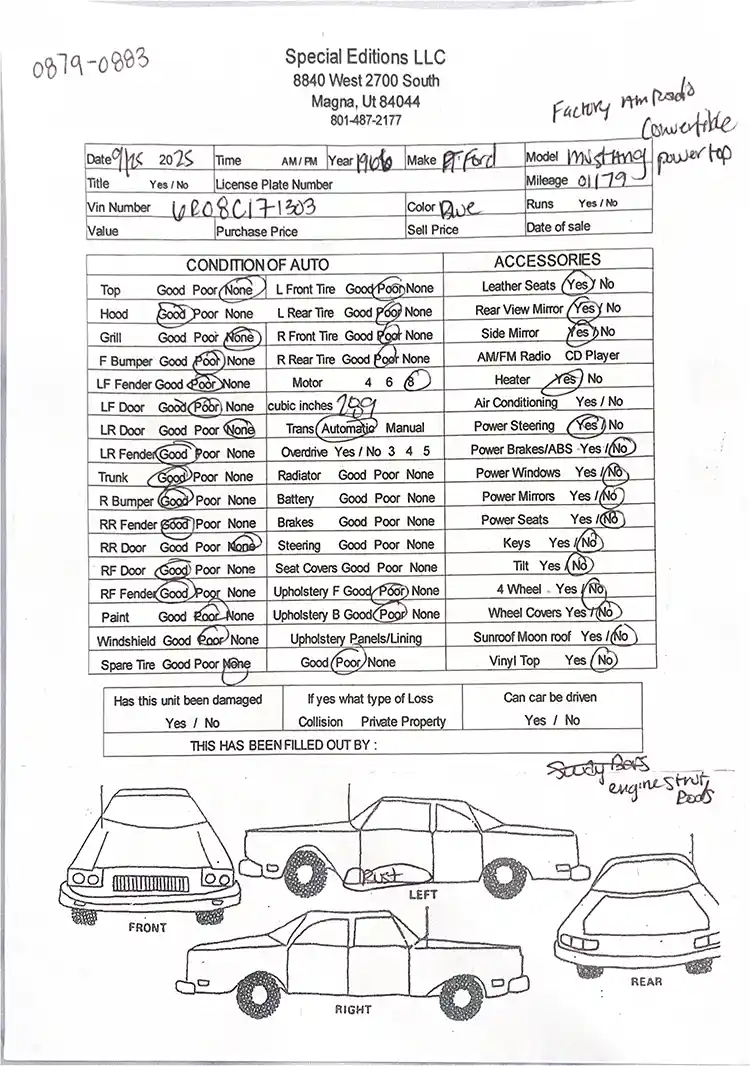 0879-0883
Special Editions LLC
8840 West 2700 South
Magna, Ut 84044
801-487-2177
Factory Am Radio
Convertible
power top
Date 9/25 2025 Time AM / PM Year 1966 Make Ford Model Mustang
Title Yes / No License Plate Number Mileage 01179
Vin Number 6R08C171303 Color Blue Runs Yes / No
Value Purchase Price Sell Price Date of sale
CONDITION OF AUTO ACCESSORIES
Top Good Poor None L Front Tire Good Poor None Leather Seats Yes / No
Hood Good Poor None L Rear Tire Good Poor None Rear View Mirror Yes / No
Grill Good Poor None R Front Tire Good Poor None Side Mirror Yes / No
F Bumper Good Poor None R Rear Tire Good Poor None AM/FM Radio CD Player
LF Fender Good Poor None Motor 4 6 8 Heater Yes / No
LF Door Good Poor None cubic inches 289 Air Conditioning Yes / No
LR Door Good Poor None Trans Automatic Manual Power Steering Yes / No
LR Fender Good Poor None Overdrive Yes / No 3 4 5 Power Brakes/ABS Yes / No
Trunk Good Poor None Radiator Good Poor None Power Windows Yes / No
R Bumper Good Poor None Battery Good Poor None Power Mirrors Yes / No
RR Fender Good Poor None Brakes Good Poor None Power Seats Yes / No
RR Door Good Poor None Steering Good Poor None Keys Yes / No
RF Door Good Poor None Seat Covers Good Poor None Tilt Yes / No
RF Fender Good Poor None Upholstery F Good Poor None 4 Wheel Yes / No
Paint Good Poor None Upholstery B Good Poor None Wheel Covers Yes / No
Windshield Good Poor None Upholstery Panels/Lining Sunroof Moon roof Yes / No
Spare Tire Good Poor None Good Poor None Vinyl Top Yes / No
Has this unit been damaged If yes what type of Loss Can car be driven
Yes / No Collision Private Property Yes / No
THIS HAS BEEN FILLED OUT BY :
engine strut
Rods
Rust
LEFT
FRONT
REAR
RIGHT